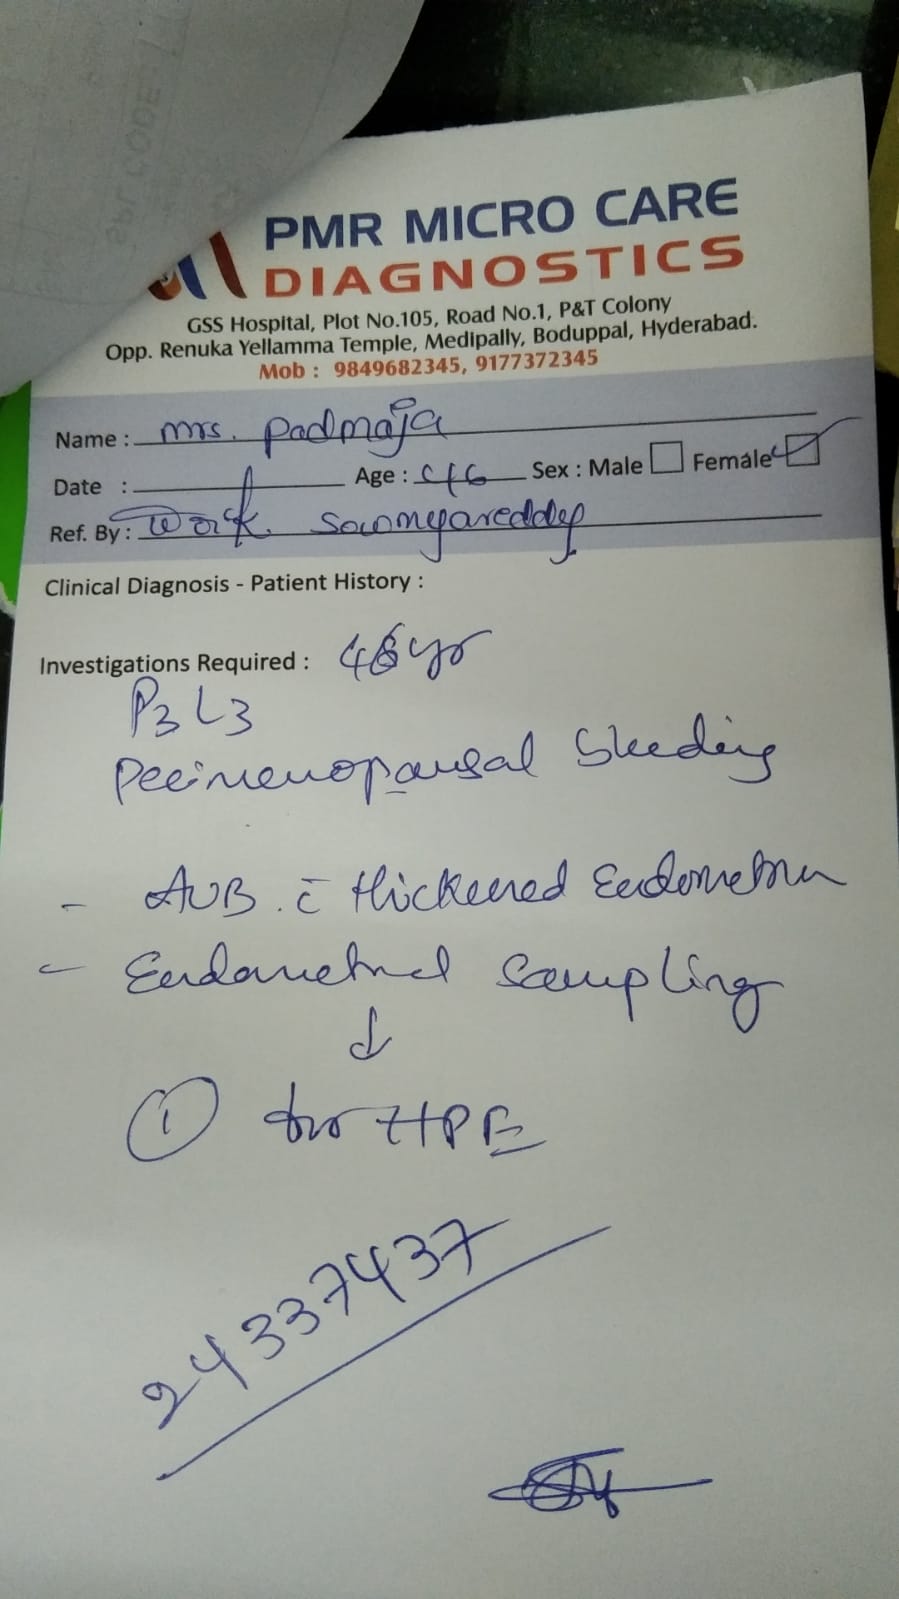 PMR MICRO CARE
DIAGNOSTICS
GSS Hospital, Plot No.105, Road No.1, P&T Colony
Opp. Renuka Yellamma Temple, Medipally, Boduppal, Hyderabad.
Mob : 9849682345, 9177372345
Name : mrs. padmaja
Date : Age : 46 Sex : Male Female
Ref. By : sowmyareddy
Clinical Diagnosis - Patient History :
Investigations Required : 46 yr
P3 L3
Perimenopausal bleeding
- AUB. c̄ thickened Endometrium
- Endometrial sampling
↓
① for HPE
243374 37